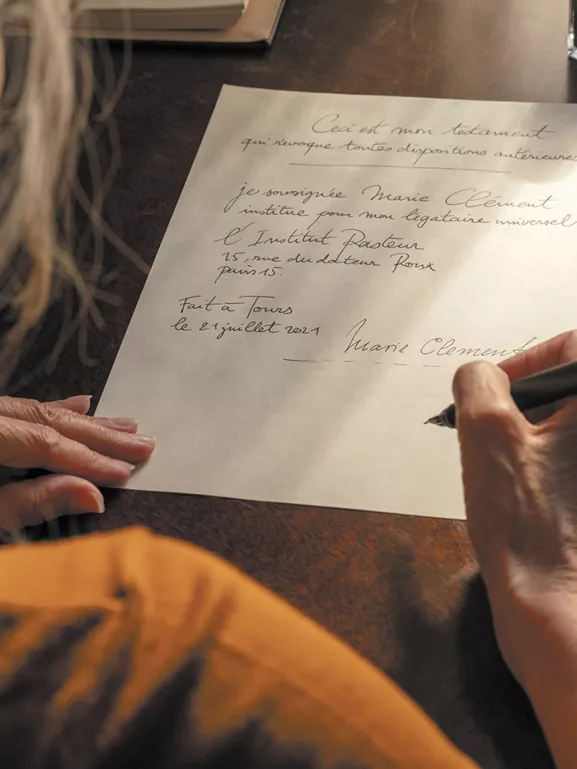 Ceci est mon testament
qui révoque toutes dispositions antérieures
je soussignée Marie Clément
institue pour mon légataire universel
l'Institut Pasteur
25, rue du docteur Roux
paris 15.
Fait à Tours
le 21 juillet 2021
Marie Clement